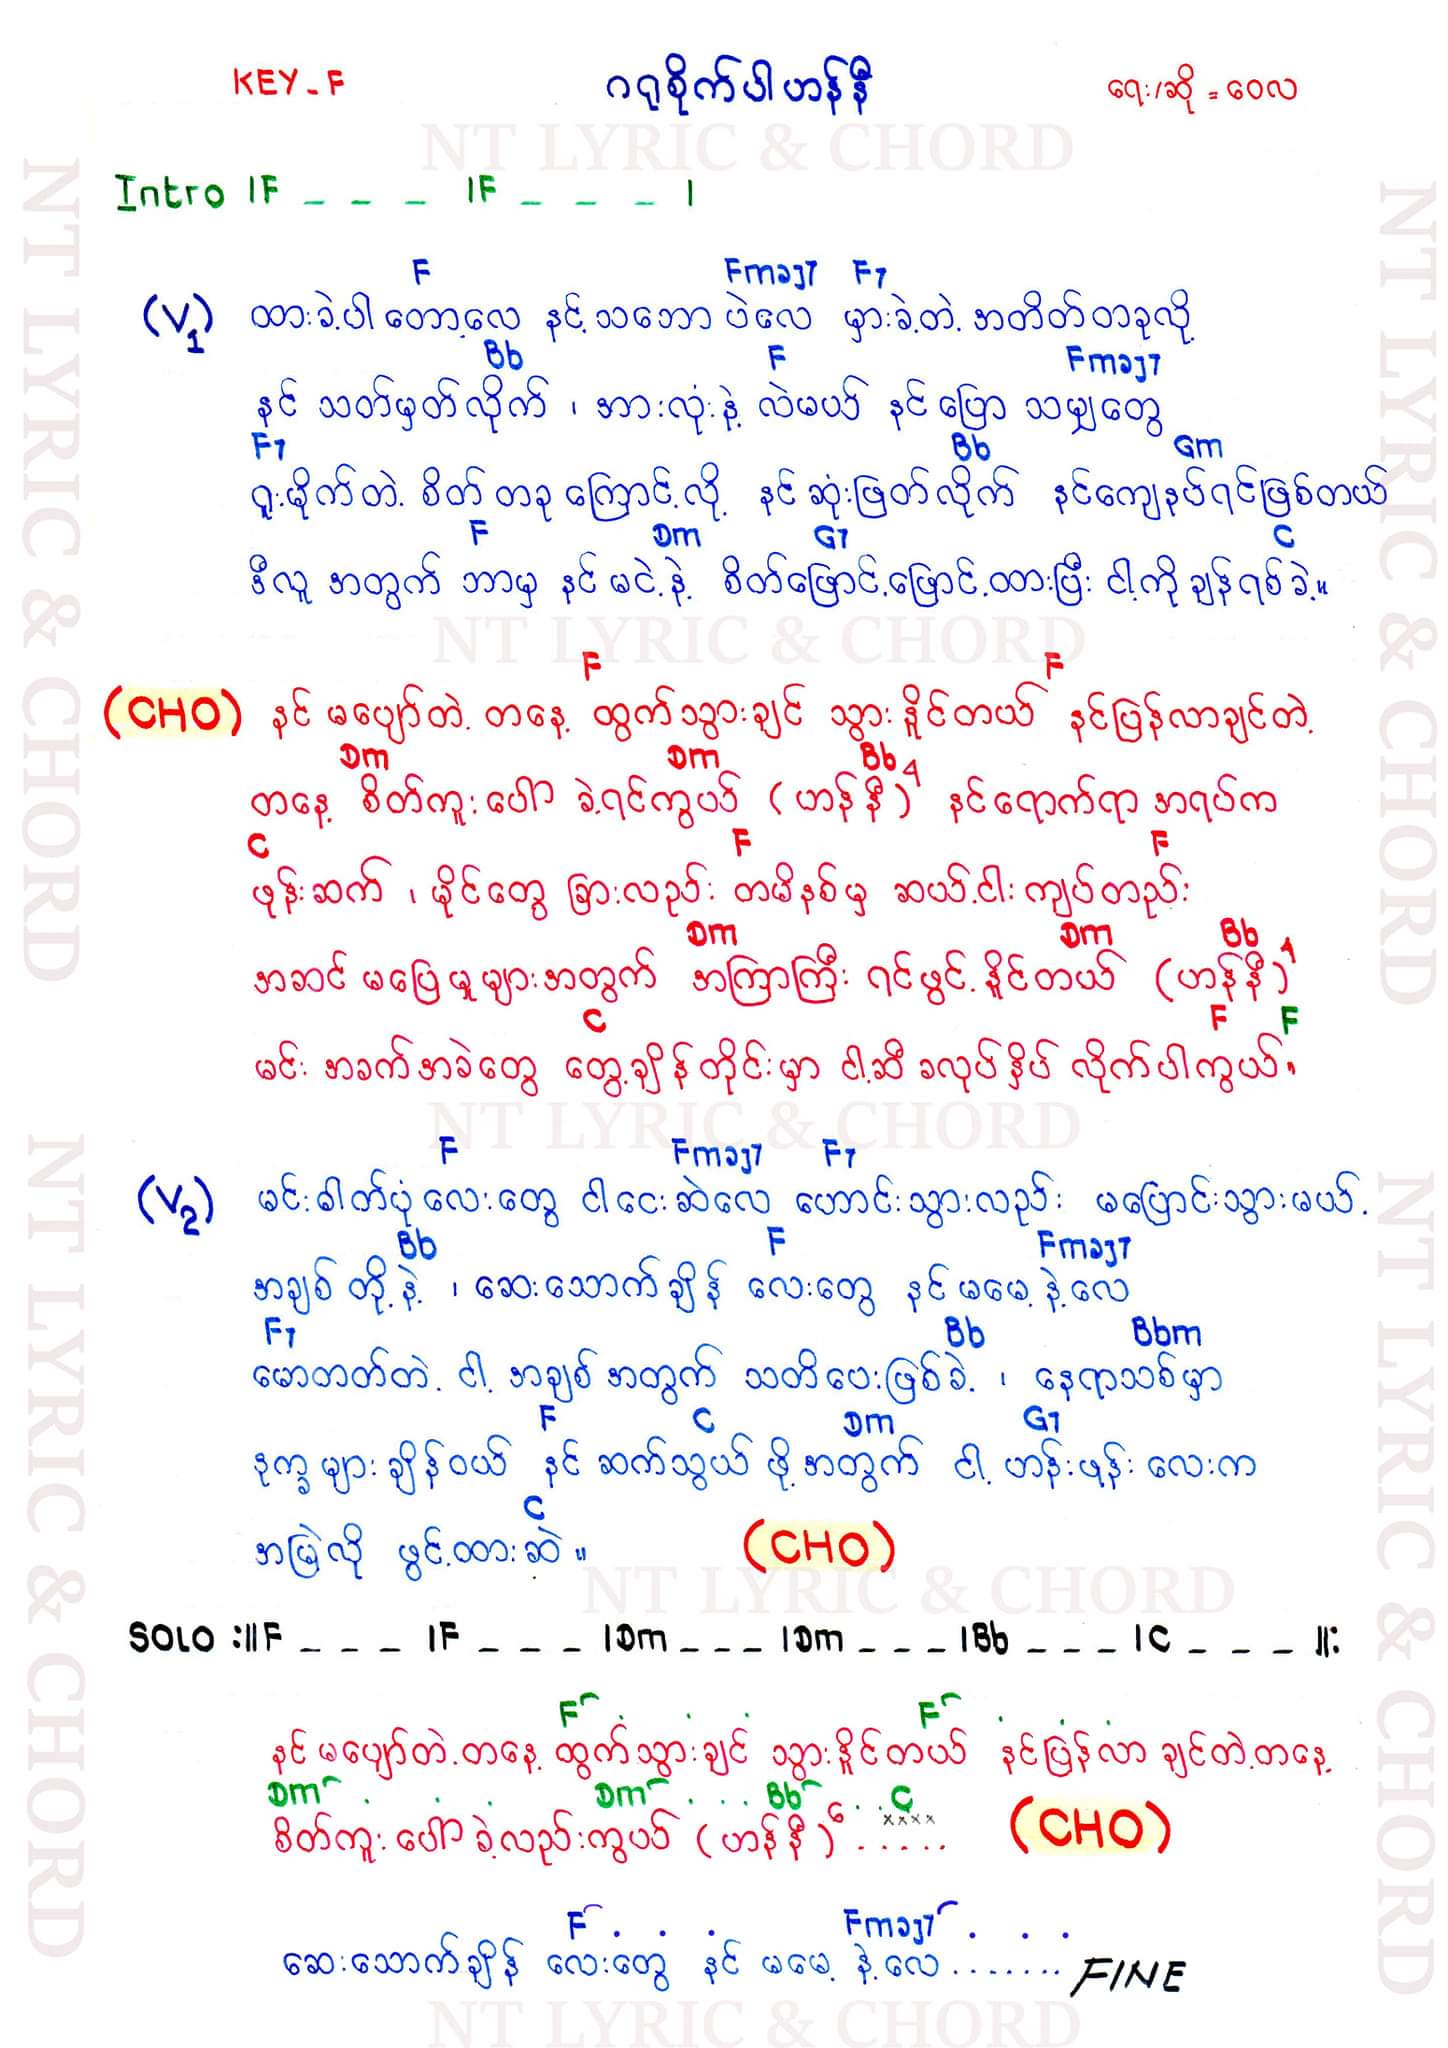 KEY-F ဂရုစိုက်ပါဟန်နီ ရေး/ဆို = ဝေလ
NT LYRIC & CHORD
Intro |F _ _ _ |F _ _ _ |
F Fmaj7 F7
(V1) ထားခဲ့ပါတော့လေ နင့်သဘောပဲလေ မှားခဲ့တဲ့အတိတ်တခုလို့
Bb F Fmaj7
နင် သတ်မှတ်လိုက် ၊ အားလုံးနဲ့ လဲမယ် နင်ပြော သမျှတွေ
F7 Bb Gm
ရူးမိုက်တဲ့ စိတ်တခုကြောင့်လို့ နင်ဆုံးဖြတ်လိုက် နင်ကျေနပ်ရင်ဖြစ်တယ်
F Dm G7 C
ဒီလူအတွက် ဘာမှ နင်မငဲ့နဲ့ စိတ်ဖြောင့်ဖြောင့်ထားပြီး ငါ့ကိုချန်ရစ်ခဲ့။
NT LYRIC & CHORD
F F
(CHO) နင် မပျော်တဲ့ တနေ့ ထွက်သွားချင် သွားနိုင်တယ် နင်ပြန်လာချင်တဲ့
Dm Dm Bb
တနေ့ စိတ်ကူးပေါ် ခဲ့ရင်ကွယ် (ဟန်နီ)4 နင်ရောက်ရာအရပ်က
C F F
ဖုန်းဆက် ၊ မိုင်တွေ ခြားလည်း တမိနစ်မှ ဆယ့်ငါးကျပ်တည်း
Dm Dm Bb
အဆင်မပြေမှုများအတွက် အကြာကြီး ရင်ဖွင့်နိုင်တယ် (ဟန်နီ)4
C F F
မင်း အခက်အခဲတွေ တွေ့ချိန်တိုင်းမှာ ငါ့ဆီခလုပ်နှိပ် လိုက်ပါကွယ်။
NT LYRIC & CHORD
F Fmaj7 F7
(V2) မင်းဓါတ်ပုံလေးတွေ ငါငေးဆဲလေ ဟောင်းသွားလည်း မပြောင်းသွားမယ့်
Bb F Fmaj7
အချစ်တို့နဲ့ ၊ ဆေးသောက်ချိန် လေးတွေ နင်မမေ့နဲ့လေ
F7 Bb Bbm
မောတတ်တဲ့ ငါ့အချစ်အတွက် သတိပေးဖြစ်ခဲ့ ၊ နေရာသစ်မှာ
F C Dm G7
ဒုက္ခများချိန်ဝယ် နင်ဆက်သွယ်ဖို့အတွက် ငါ့ဟန်းဖုန်းလေးက
C
အမြဲလို ဖွင့်ထားဆဲ ။ (CHO)
NT LYRIC & CHORD
SOLO :||F _ _ _ |F _ _ _ |Dm _ _ _ |Dm _ _ _ |Bb _ _ _ |C _ _ _ ||:
F F
နင်မပျော်တဲ့တနေ့ ထွက်သွားချင် သွားနိုင်တယ် နင်ပြန်လာ ချင်တဲ့တနေ့
Dm Dm Bb C
စိတ်ကူးပေါ် ခဲ့လည်းကွယ် (ဟန်နီ)6 ..... (CHO)
F Fmaj7
ဆေးသောက်ချိန် လေးတွေ နင် မမေ့ နဲ့လေ ....... FINE
NT LYRIC & CHORD
NT LYRIC & CHORD
NT LYRIC & CHORD
NT LYRIC & CHORD
NT LYRIC & CHORD